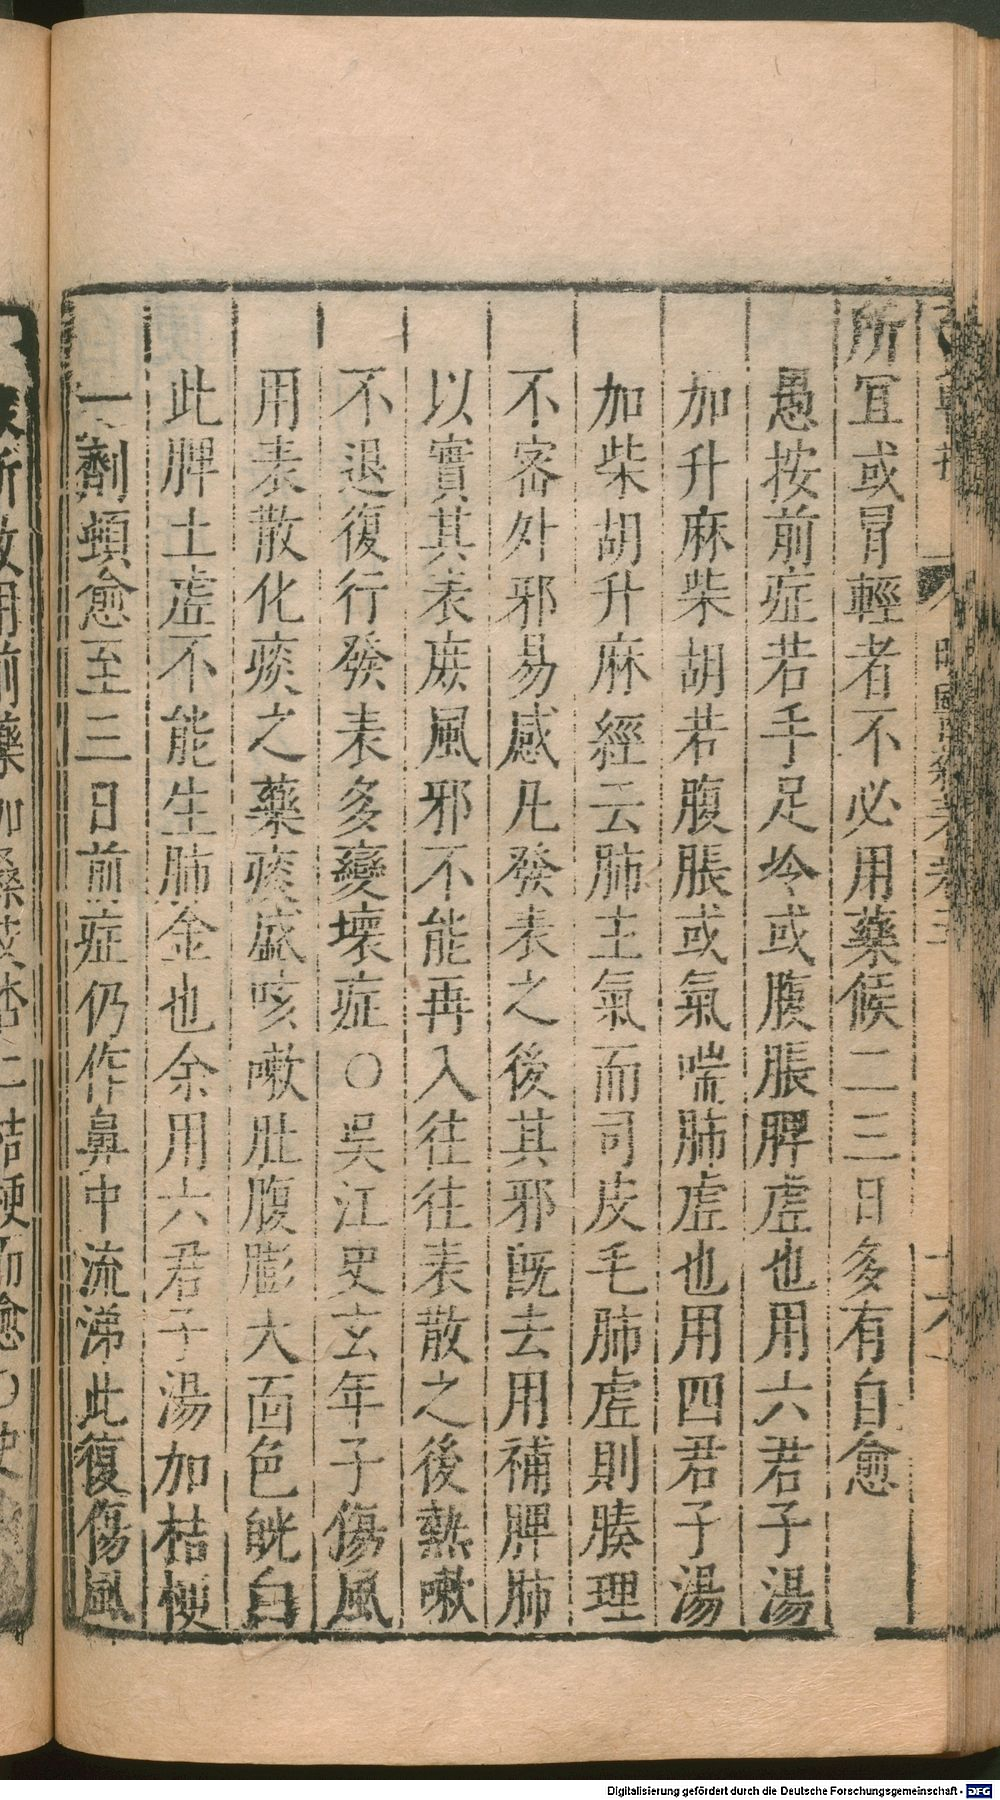 所宜或冒輕者不必用藥候二三日多有自愈
愚按前症若手足冷或腹脹脾虛也用六君子湯
加升麻柴胡若腹脹或氣喘肺虛也用四君子湯
加柴胡升麻經云肺主氣而司皮毛肺虛則腠理
不密外邪易感凡發表之後其邪既去用補脾肺
以實其表庶風邪不能再入往往表散之後熱嗽
不退復行發表多變壞症○吳江史玄年子傷風
用表散化痰之藥痰盛咳嗽肚腹膨大面色㿠白
此脾土虛不能生肺金也余用六君子湯加桔梗
一劑頓愈至三日前症仍作鼻中流涕此復傷風
所致用前藥加桑皮杏仁桔梗而愈○史
Digitalisierung gefördert durch die Deutsche Forschungsgemeinschaft - DFG